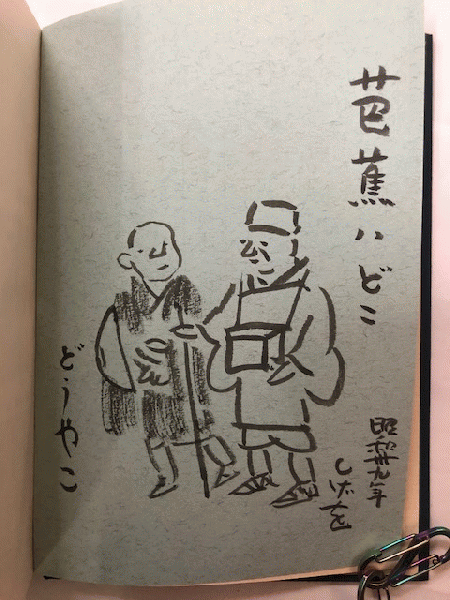 芭蕉ハどこ
昭和卅九年
しげを
どうやこ